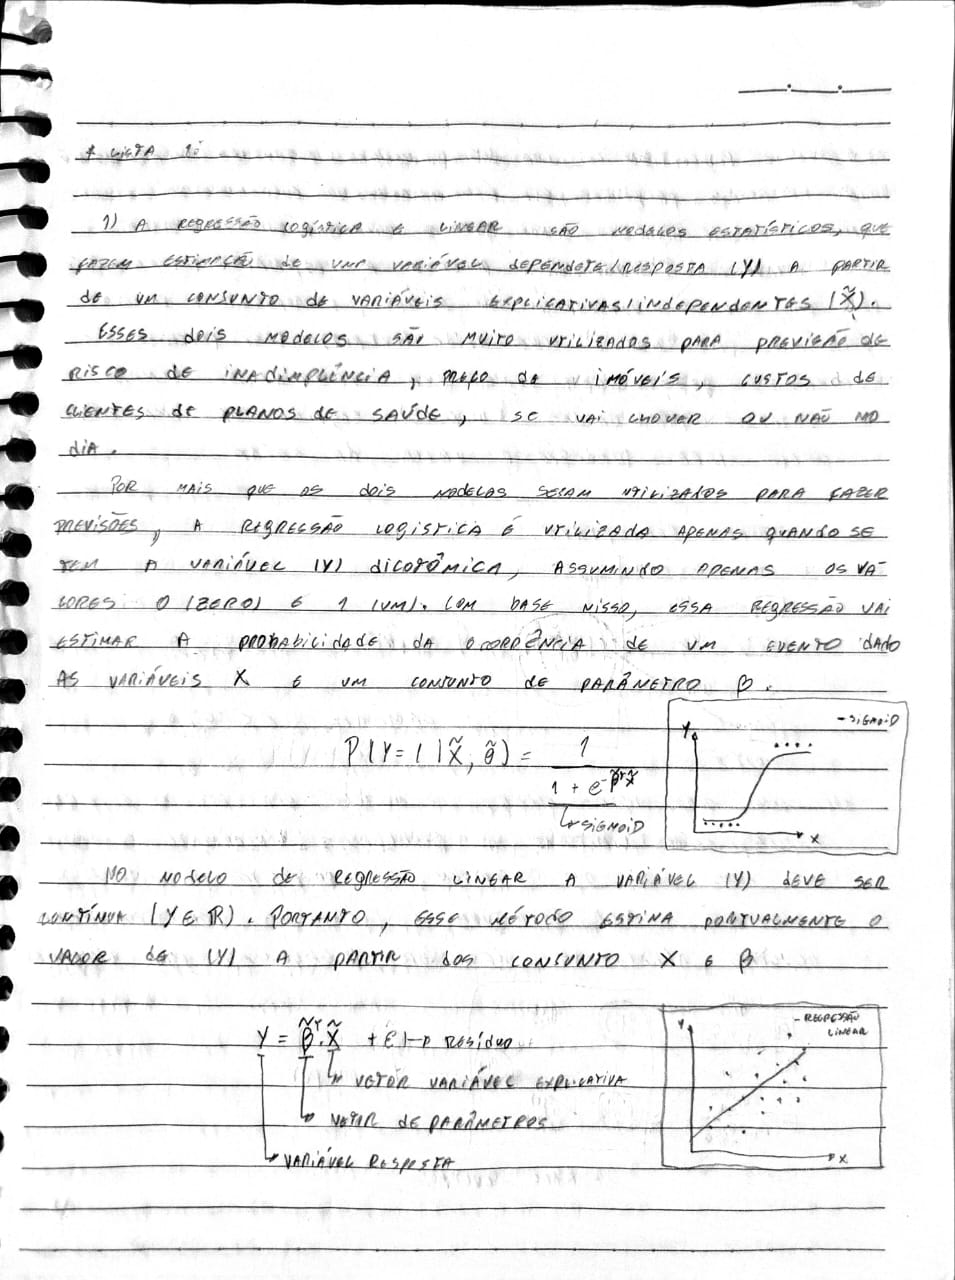 * LISTA 1:
1) A REGRESSÃO LOGÍSTICA E LINEAR SÃO MODELOS ESTATÍSTICOS, QUE
FAZEM ESTIMAÇÃO DE UMA VARIÁVEL DEPENDETE/RESPOSTA (Y) A PARTIR
DE UM CONJUNTO DE VARIÁVEIS EXPLICATIVAS/INDEPENDENTES (X̃).
ESSES DOIS MODELOS SÃO MUITO UTILIZADOS PARA PREVISÃO DE
RISCO DE INADIMPLÊNCIA, PREÇO DE IMÓVEIS, CUSTOS DE
CLIENTES DE PLANOS DE SAÚDE, SE VAI CHOVER OU NÃO NO
DIA.
POR MAIS QUE OS DOIS MODELOS SEJAM UTILIZADOS PARA FAZER
PREVISÕES, A REGRESSÃO LOGISTICA É UTILIZADA APENAS QUANDO SE
TEM A VARIÁVEL (Y) DICOTÔMICA, ASSUMINDO APENAS OS VA-
LORES 0 (ZERO) E 1 (UM). COM BASE NISSO, ESSA REGRESSÃO VAI
ESTIMAR A PROBABILIDADE DA OCORRÊNCIA DE UM EVENTO DADO
AS VARIÁVEIS X E UM CONJUNTO DE PARÂMETRO β.
- SIGMOID
Y
P(Y=1|X̃, θ̃) = 1 / (1 + e^-β̃ᵀX̃)
SIGMOID
X
NO MODELO DE REGRESSÃO LINEAR A VARIÁVEL (Y) DEVE SER
CONTÍNUA (Y ∈ ℝ). PORTANTO, ESSE MÉTODO ESTIMA PONTUALMENTE O
VALOR DE (Y) A PARTIR DOS CONJUNTO X E β
- REGRESSÃO
LINEAR
Y
Y = β̃ᵀ.X̃ + ε → RESÍDUO
VETOR VARIÁVEL EXPLICATIVA
VETOR DE PARÂMETROS
VARIÁVEL RESPOSTA
X